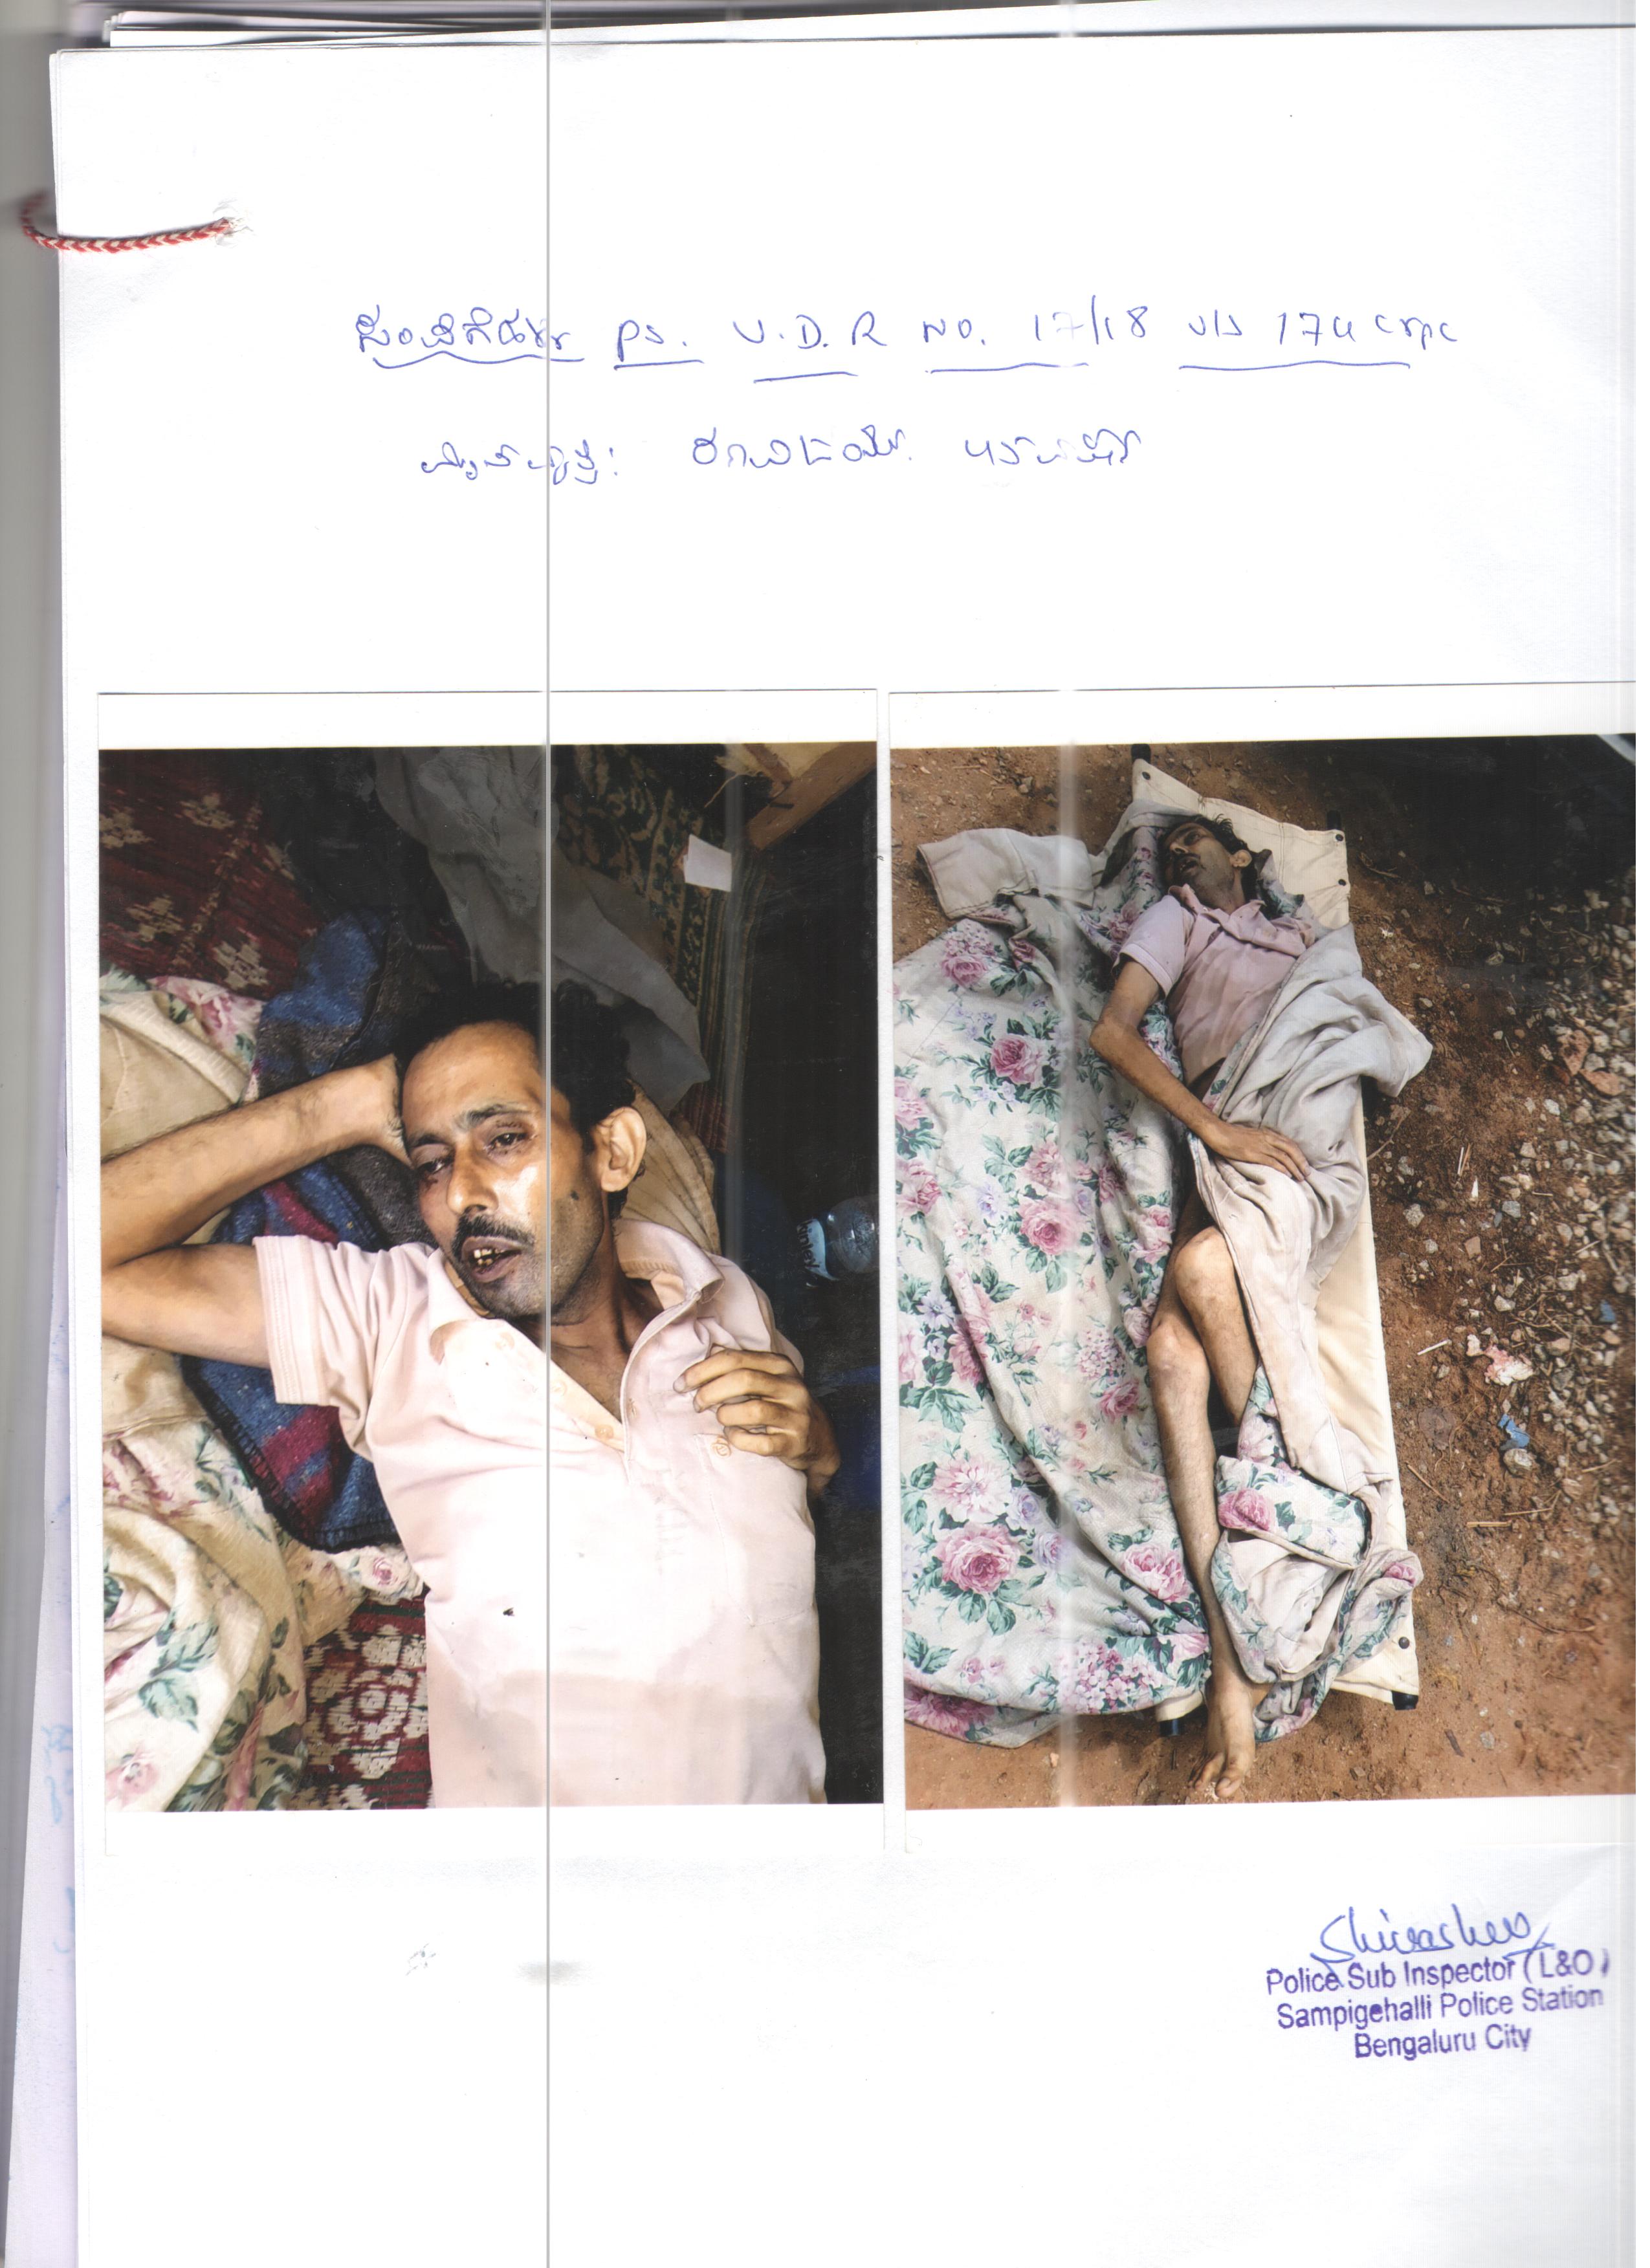 ಸಂಪಿಗೆಹಳ್ಳಿ PS. U.D.R NO. 17/18 U/S 174 crpc
ಮೃತವ್ಯಕ್ತಿ:
Police Sub Inspector (L&O)
Sampigehalli Police Station
Bengaluru City